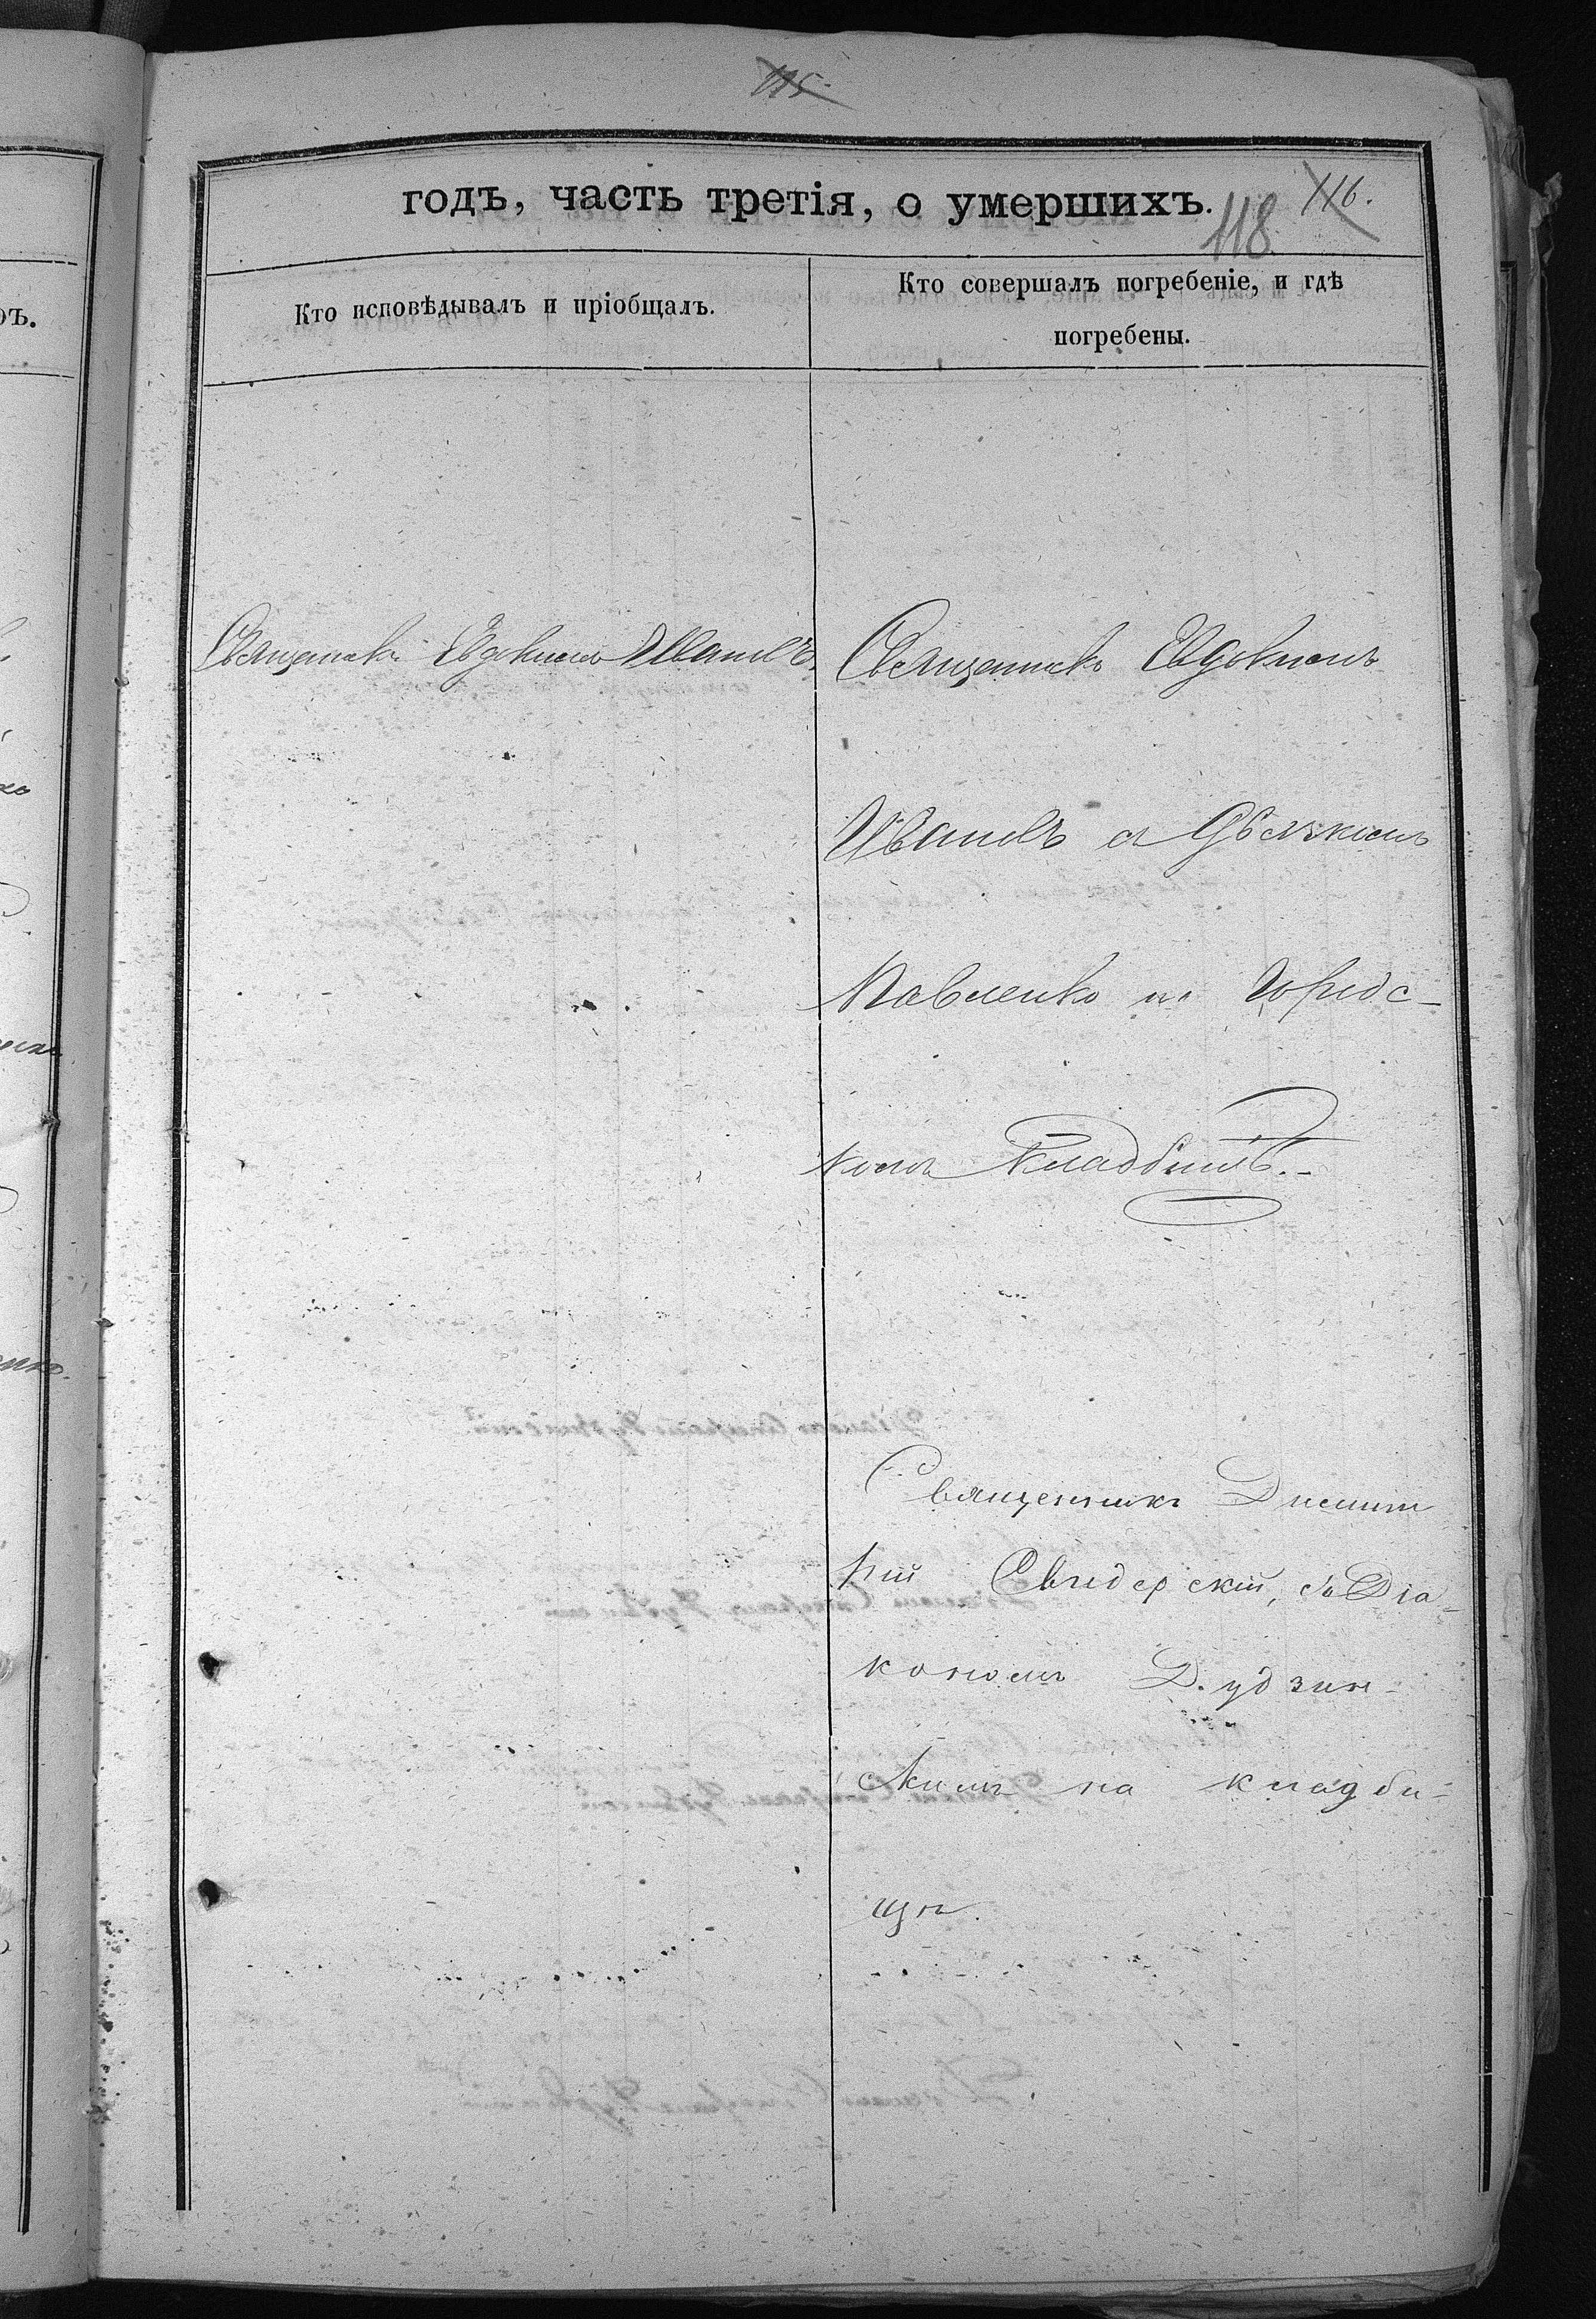 115.
годъ, часть третія, о умершихъ.
116.
118
Кто исповѣдывалъ и пріобщалъ.
Кто совершалъ погребеніе, и гдѣ
погребены.
Священникъ Евдокимъ Ивановъ.
Священникъ Евдокимъ
Ивановъ съ
Павленко на Городс-
комъ Кладбищѣ.
Священникъ Димит
рій Свидерскій, съ Діа-
кономъ Дудзин-
скимъ на кладби-
щѣ.